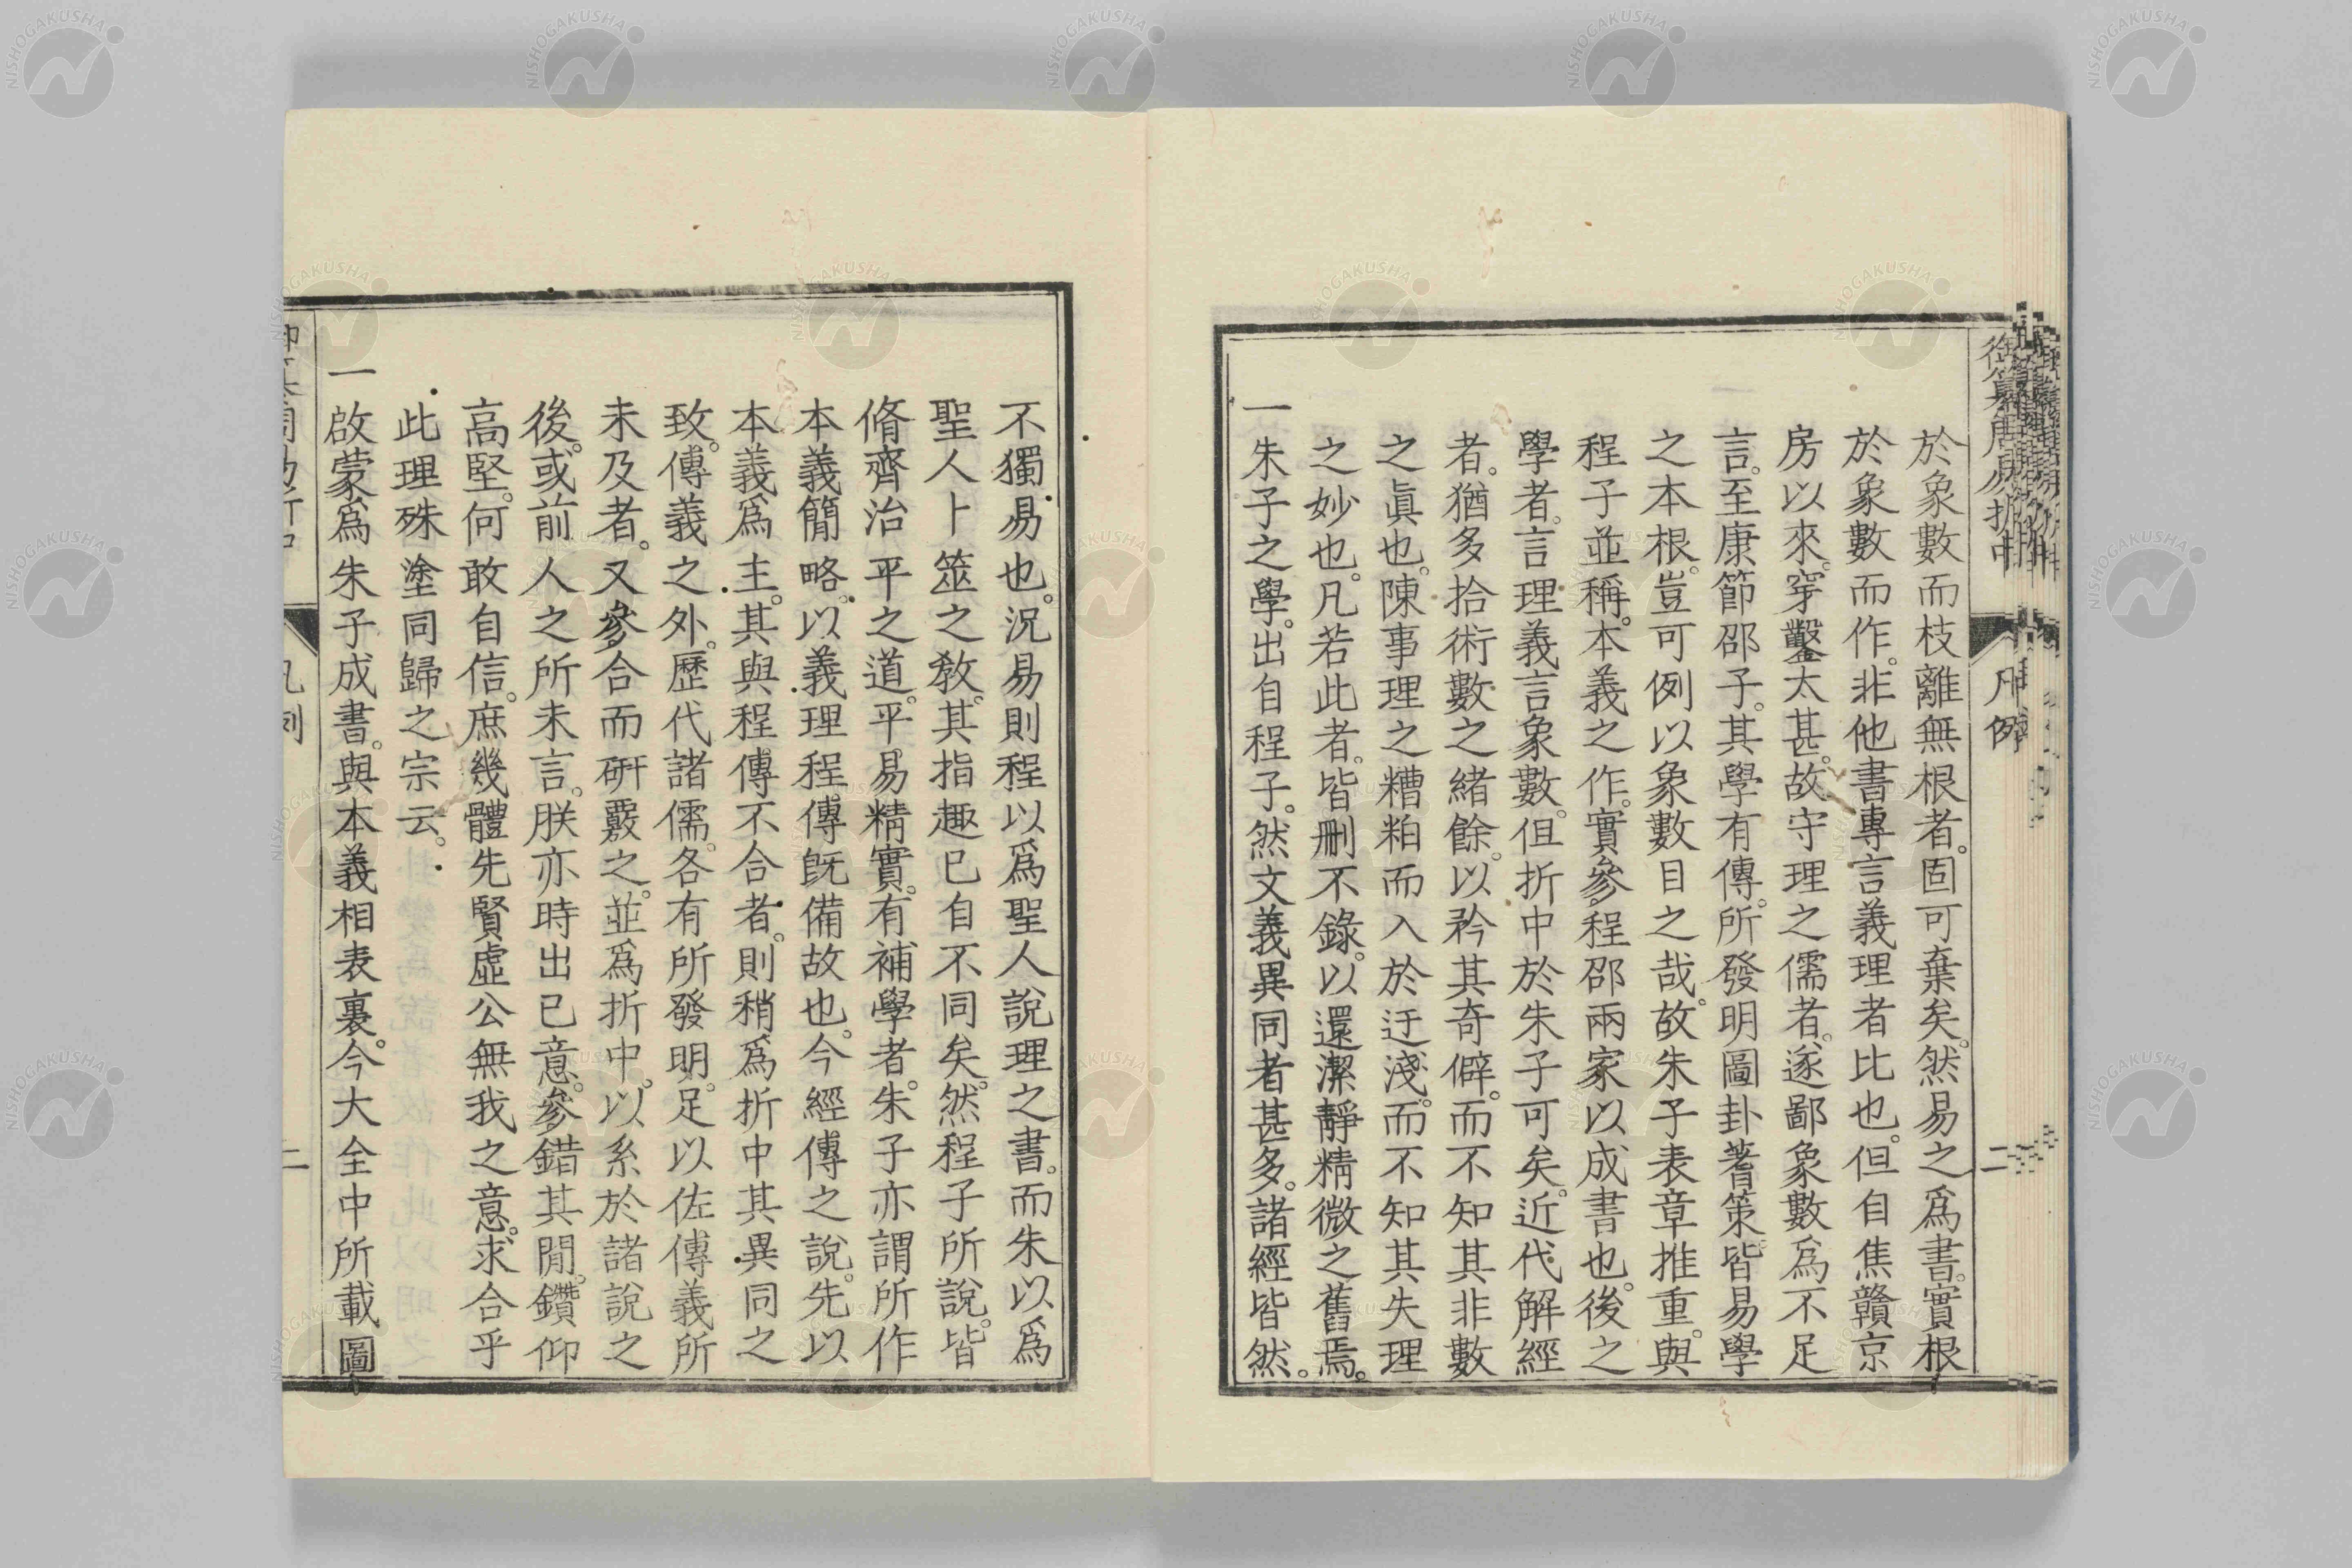 御纂周易折中 凡例 二
於象數而枝離無根者。固可棄矣。然易之爲書。實根
於象數而作。非他書專言義理者比也。但自焦贛京
房以來。穿鑿太甚。故守理之儒者。遂鄙象數爲不足
言。至康節邵子。其學有傳。所發明圖卦蓍策。皆易學
之本根。豈可例以象數目之哉。故朱子表章推重。與
程子並稱。本義之作。實參程邵兩家以成書也。後之
學者。言理義言象數。但折中於朱子可矣。近代解經
者。猶多拾術數之緒餘。以矜其奇僻。而不知其非數
之眞也。陳事理之糟粕而入於迂淺。而不知其失理
之妙也。凡若此者。皆刪不錄。以還潔靜精微之舊焉。
一朱子之學。出自程子。然文義異同者甚多。諸經皆然。
不獨易也。況易則程以爲聖人說理之書。而朱以爲
聖人卜筮之敎。其指趣已自不同矣。然程子所說。皆
脩齊治平之道。平易精實。有補學者。朱子亦謂所作
本義簡略。以義理程傳旣備故也。今經傳之說。先以
本義爲主。其與程傳不合者。則稍爲折中其異同之
致。傳義之外。歷代諸儒。各有所發明。足以佐傳義所
未及者。又參合而硏覈之。並爲折中。以系於諸說之
後。或前人之所未言。朕亦時出己意。參錯其閒。鑽仰
高堅。何敢自信。庶幾體先賢虛公無我之意。求合乎
此理殊塗同歸之宗云。
一啟蒙爲朱子成書。與本義相表裏。今大全中所載圖
凡例
二
NISHOGAKUSHA